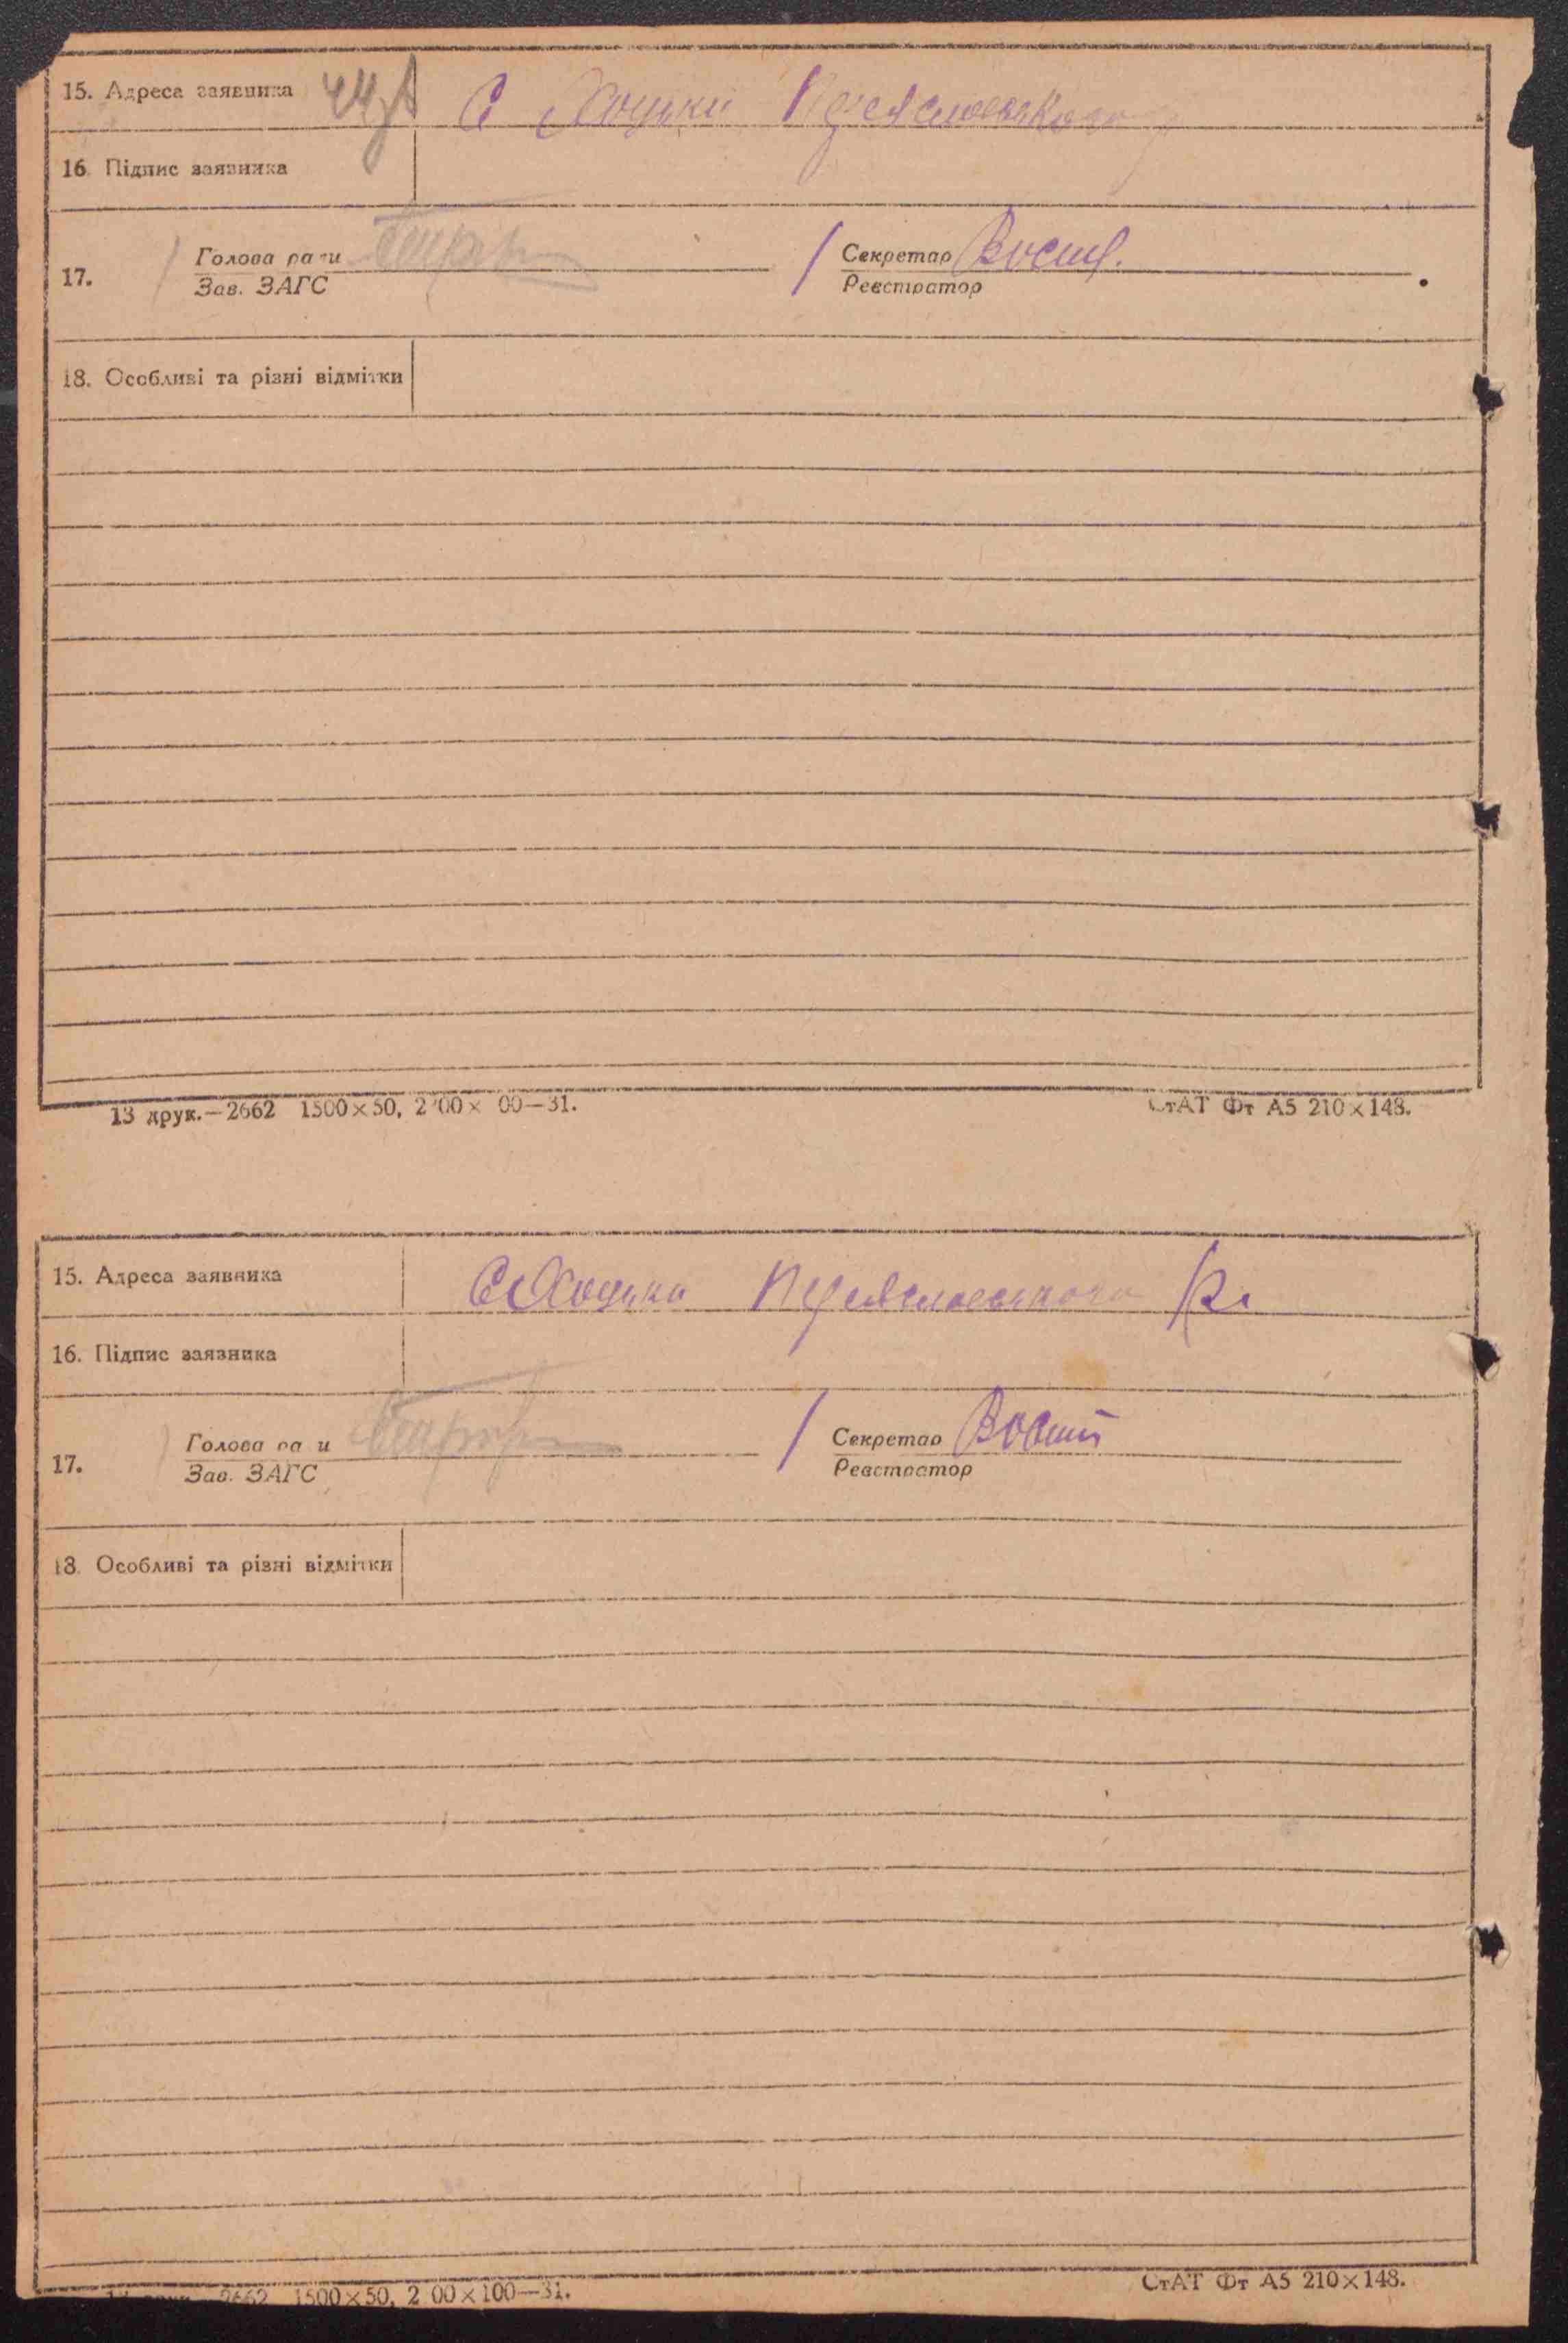 15. Адреса заявника С Хоцьки Переяславського
16. Підпис заявника
17. Голова ради Секретар
Зав. ЗАГС Реєстратор
18. Особливі та різні відмітки
13 друк.—2662 1500×50, 2 00× 00—31. СтАТ Фт А5 210×148.
15. Адреса заявника С Хоцьки Переяславського Р.
16. Підпис заявника
17. Голова ради Секретар
Зав. ЗАГС Реєстратор
18. Особливі та різні відмітки
2662 1500×50, 2 00×100—31. СтАТ Фт А5 210×148.